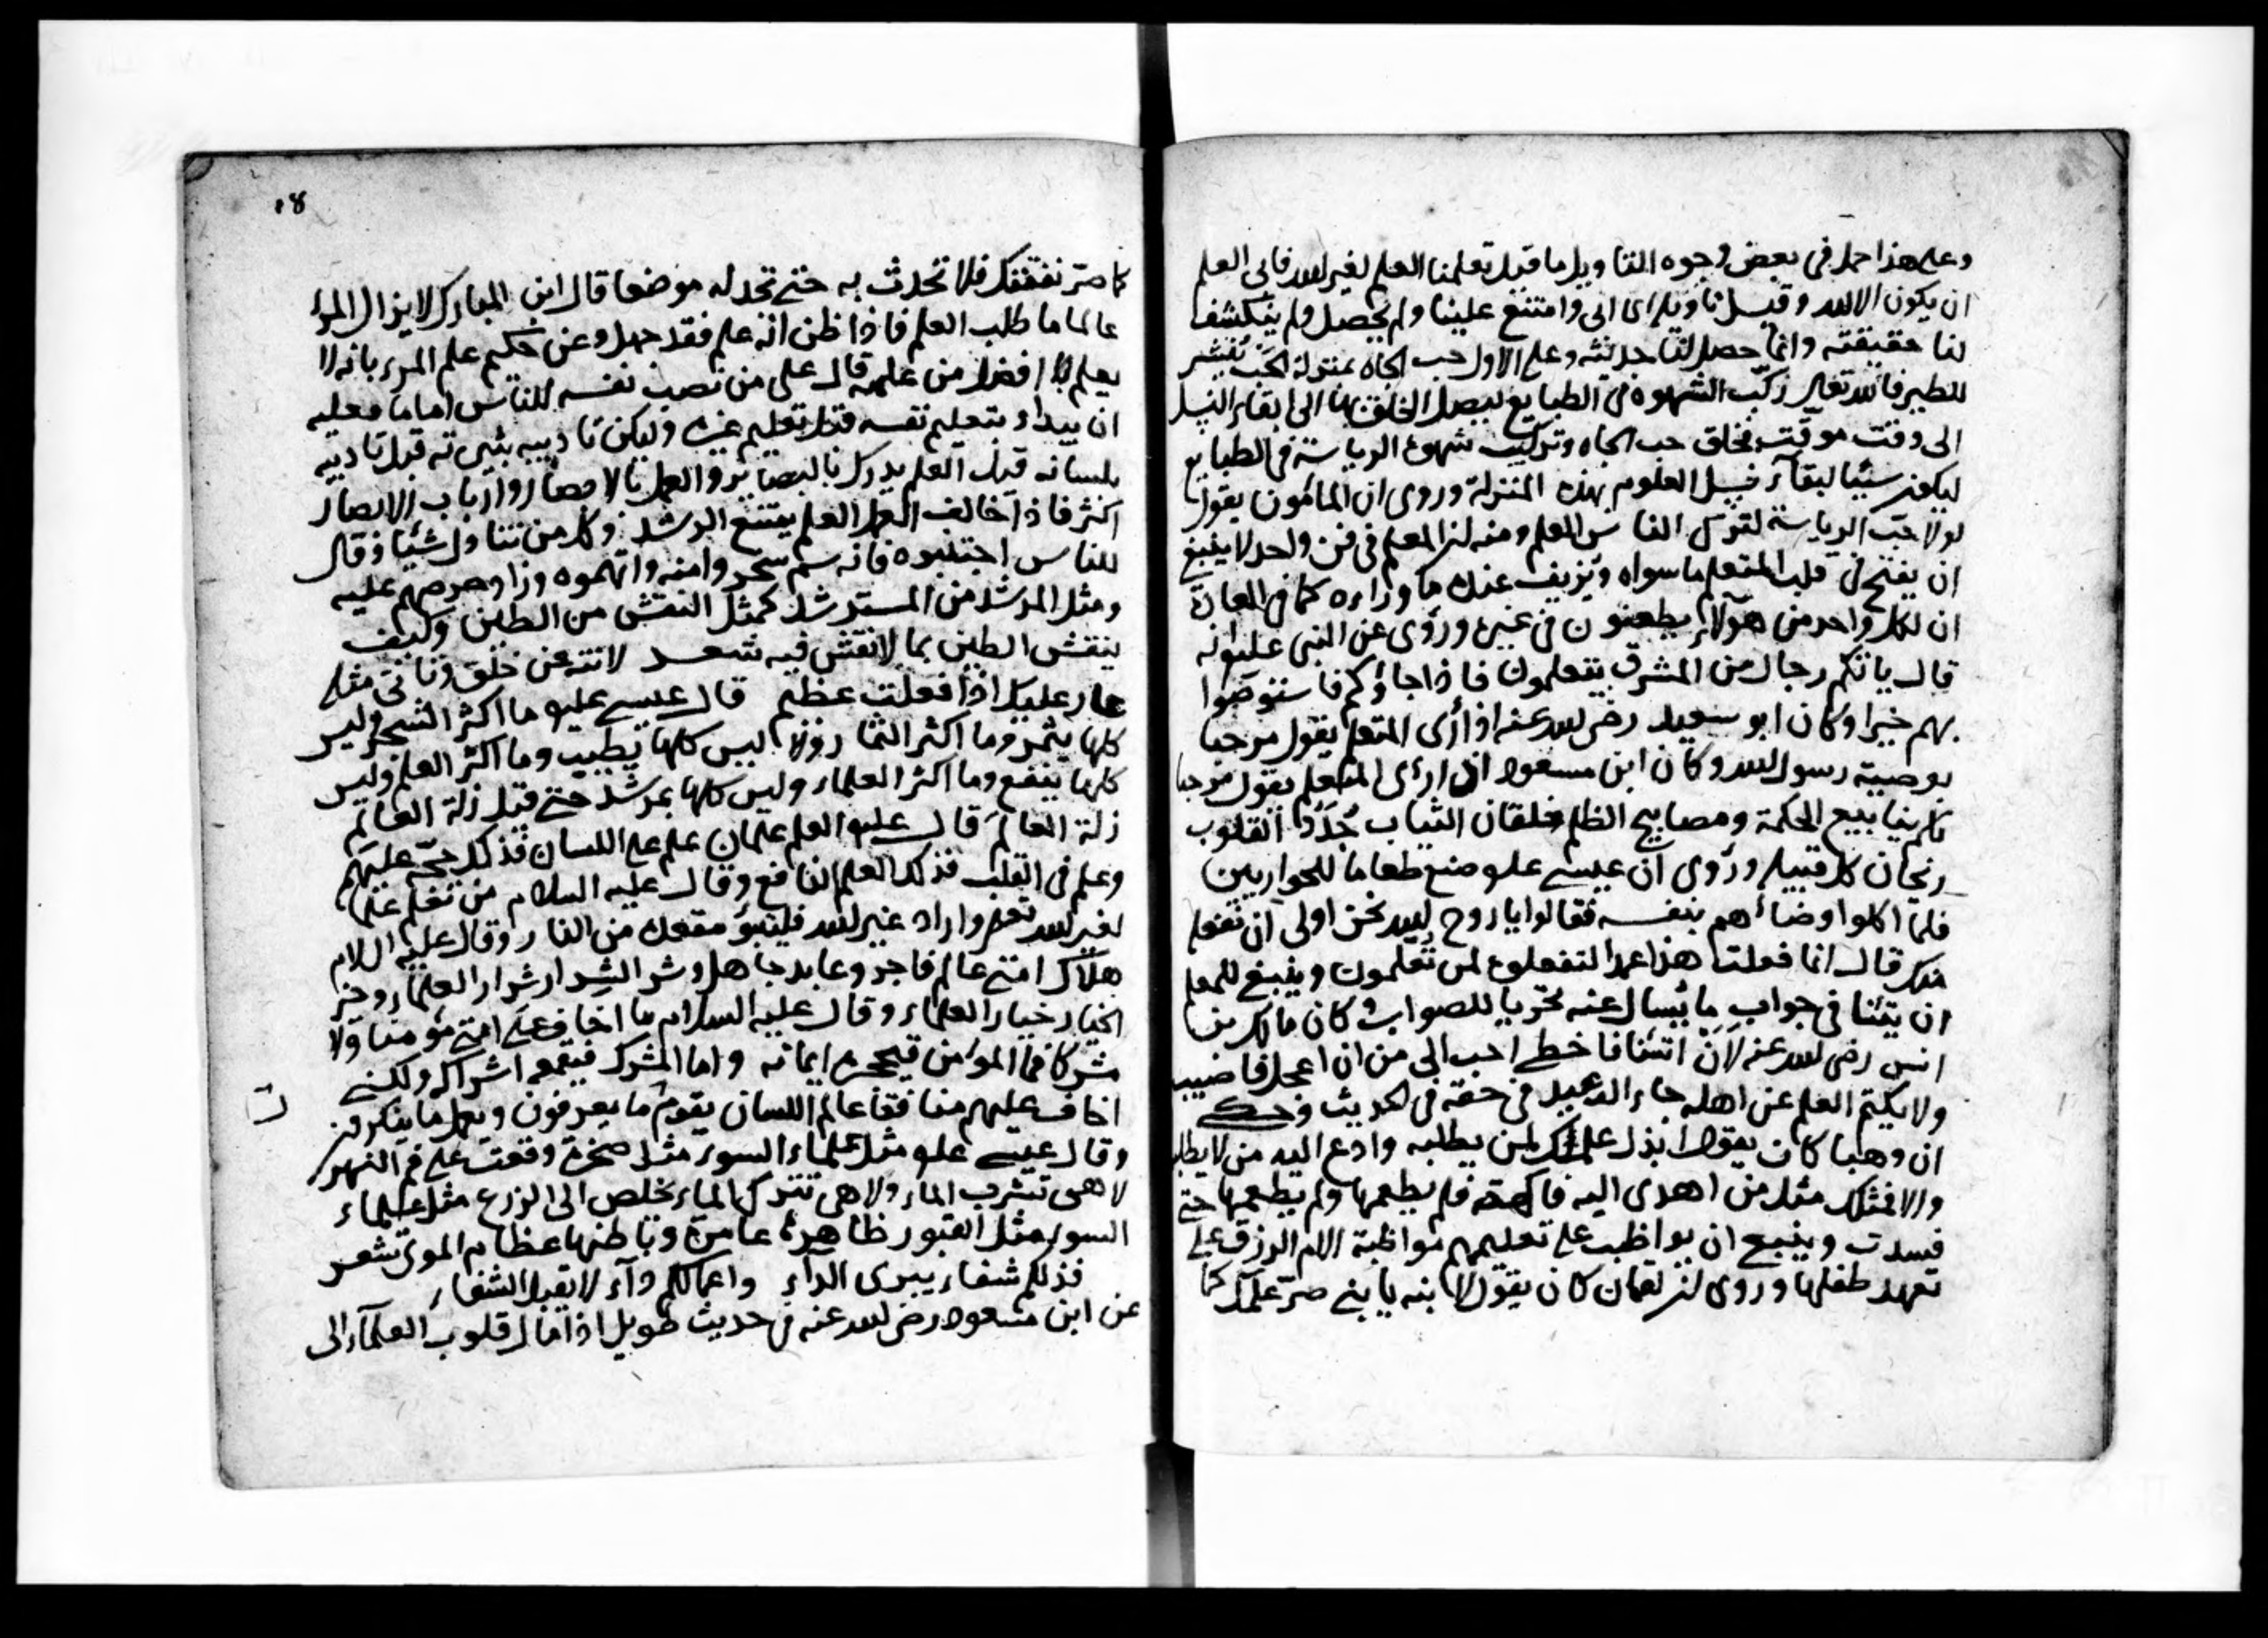 وعلى هذا حمل في بعض وجوه التاويل ما قيل تعلمنا العلم لغير الله فابى العلم
ان يكون الا لله وقيل تاويله اى ابى وامتنع علينا ولم يحصل ولم ينكشف
لنا حقيقته وانما حصل لنا حديثه وعلى الاول حب الجاه بمنزلة الحب ينشر
للطير فالله تعالى ركب الشهوة في الطبايع ليصل الخلق بها الى ابقاء النسل
الى وقت موقت فخلق حب الجاه وتركيب شهوة الرياسة في الطبايع
ليكون سببا لبقاء العلوم بهذه المنزلة وروى ان المامون يقول
لولا حب الرياسة لترك الناس العلم ومنه ان المعلم في فن واحد لا ينبغي
ان يقبح في قلب المتعلم ما سواه ويزيف عنده ما وراءه كما في العادة
ان لكل واحد من هؤلاء يطعنون في غيره وروى عن النبي عليه انه
قال ياتكم رجال من المشرق يتعلمون فاذا جاؤكم فاستوصوا
بهم خيرا وكان ابو سعيد رضى الله عنه اذا رأى المتعلم يقول مرحبا
بوصية رسول الله وكان ابن مسعود اذا رأى المتعلم يقول مرحبا
بكم ينابيع الحكمة ومصابيح الظلم خلقان الثياب جدد القلوب
ريحان كل قبيلة وروى ان عيسى علو صنع طعاما للحواريين
فلما اكلوا وضاهم بنفسه فقالوا يا روح الله نحن اولى ان نفعل
منك قال انما فعلت هذا عمدا لتفعلوه لمن تعلمون وينبغي للمعلم
ان يتئنا في جواب ما يسال عنه تحريا للصواب وكان مالك بن
انس رضى الله عنه لان اتئنا فاخطى احب الى من ان اعجل فاصيب
ولا يكتم العلم عن اهله جاء الوعيد في حقه في الحديث وحكى
ان وهبا كان يقول ابذل علمك لمن يطلبه وادع اليه من لا يطلبه
والا فمثلك مثل من اهدى اليه فاكهة فلم يطعمها ولم يطعمها حتى
فسدت وينبغي ان يواظب على تعليمهم مواظبة الام الرزق على
تعهد طفلها وروى ان لقمان كان يقول لابنه يا بني صر علمك كما
٨
كما صر نفقتك فلا تحدث به حتى تجد له موضعا قال ابن المبارك لا يزال المرء
عالما ما طلب العلم فاذا ظن انه علم فقد جهل وعن حكيم علم المرء بانه لا
يعلم افضل من علمه قال على من نصب نفسه للناس اماما فعليه
ان يبداء بتعليم نفسه قبل تعليم غيره وليكن تاديبه بسيرته قبل تاديبه
بلسانه قيل العلم يدرك بالبصاير والعمل بالابصار وارباب الابصار
اكثر فاذا خالف العمل العلم يمتنع الرشد وكل من تناول شيئا وقال
للناس اجتنبوه فانه سم سخروا منه واتهموه وزاد حرصهم عليه
ومثل المرشد من المسترشد كمثل النقش من الطين وكيف
ينقش الطين بما لا نقش فيه شعر لا تنه عن خلق وتاتى مثله
عار عليك اذا فعلت عظيم قال عيسى عليه ما اكثر الشجر وليس
كلها يثمر وما اكثر الثمار وليس كلها يطيب وما اكثر العلم وليس
كلها ينفع وما اكثر العلماء وليس كلها بمرشد حتى قيل زلة العالم
زلة العالم قال عليه العلم علمان علم على اللسان فذلك حجة عليهم
وعلم في القلب فذلك العلم النافع وقال عليه السلام من تعلم علما
لغير الله تعلم واراد غير الله فليتبوأ مقعده من النار وقال عليه السلام
هلاك امتى عالم فاجر وعابد جاهل وشر الشرار شرار العلماء وخير
الخيار خيار العلماء وقال عليه السلام ما اخاف على امتى مؤمنا ولا
مشركا فاما المؤمن فيحجزه ايمانه واما المشرك فيقمعه اشراكه ولكنى
اخاف عليهم منافقا عالم اللسان يقول ما يعرفون ويعمل ما ينكرون
وقال عيسى علو مثل علماء السوء مثل صخرة وقعت على فم النهر
لا هى تشرب الماء ولا هى تترك الماء يخلص الى الزرع مثل علماء
السوء مثل القبور ظاهرها عامرة وباطنها عظام الموتى شعر
فذلكم شفاء يبرى الداء واعمالكم داء لا يقبل الشفاء
عن ابن مسعود رضى الله عنه في حديث طويل اذا مال قلوب العلماء الى